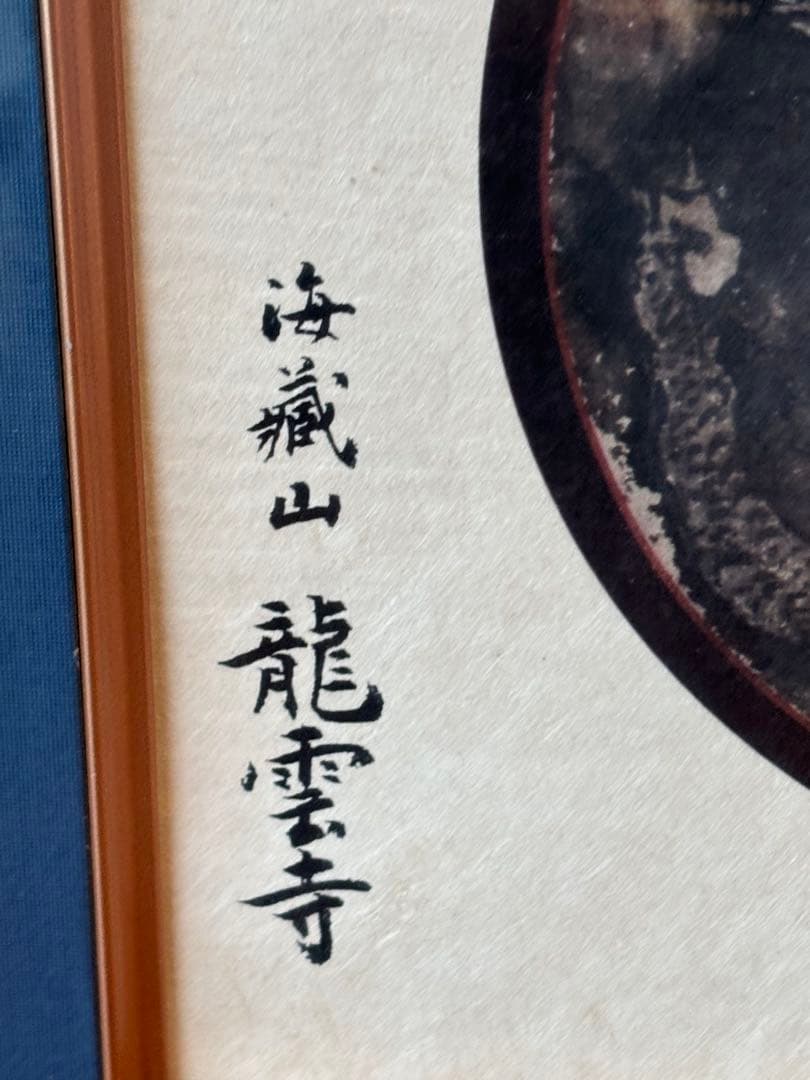 海藏山 龍雲寺